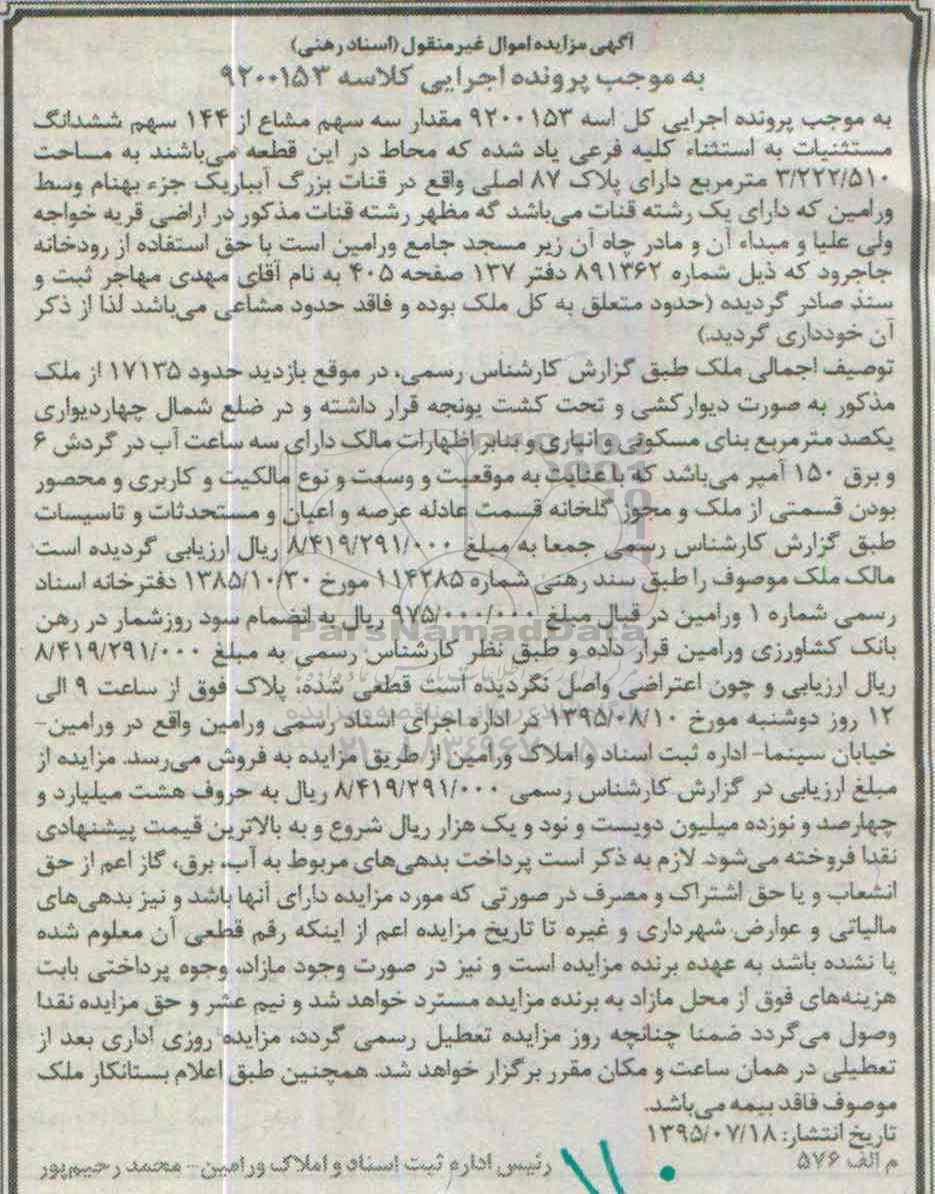 آگهی مزایده اموال غیرمنقول (اسناد رهنی)
به موجب پرونده اجرایی کلاسه ۹۲۰۰۱۵۳
به موجب پرونده اجرایی کل اسه ۹۲۰۰۱۵۳ مقدار سه سهم مشاع از ۱۴۴ سهم ششدانگ
مستثنیات به استثناء کلیه فرعی یاد شده که محاط در این قطعه می‌باشند به مساحت
۳/۲۲۲/۵۱۰ مترمربع دارای پلاک ۸۷ اصلی واقع در قنات بزرگ آبباریک جزء بهنام وسط
ورامین که دارای یک رشته قنات می‌باشد گه مظهر رشته قنات مذکور در اراضی قریه خواجه
ولی علیا و مبداء آن و مادر چاه آن زیر مسجد جامع ورامین است با حق استفاده از رودخانه
جاجرود که ذیل شماره ۸۹۱۳۶۲ دفتر ۱۳۷ صفحه ۴۰۵ به نام آقای مهدی مهاجر ثبت و
سند صادر گردیده (حدود متعلق به کل ملک بوده و فاقد حدود مشاعی می‌باشد لذا از ذکر
آن خودداری گردید.)
توصیف اجمالی ملک طبق گزارش کارشناس رسمی، در موقع بازدید حدود ۱۷۱۳۵ از ملک
مذکور به صورت دیوارکشی و تحت کشت یونجه قرار داشته و در ضلع شمال چهاردیواری
یکصد مترمربع بنای مسکونی و انباری و بنابر اظهارات مالک دارای سه ساعت آب در گردش ۶
و برق ۱۵۰ آمپر می‌باشد که با عنایت به موقعیت و وسعت و نوع مالکیت و کاربری و محصور
بودن قسمتی از ملک و مجوز گلخانه قسمت عادله عرصه و اعیان و مستحدثات و تاسیسات
طبق گزارش کارشناس رسمی جمعا به مبلغ ۸/۴۱۹/۲۹۱/۰۰۰ ریال ارزیابی گردیده است
مالک ملک موصوف را طبق سند رهنی شماره ۱۱۴۲۸۵ مورخ ۱۳۸۵/۱۰/۳۰ دفترخانه اسناد
رسمی شماره ۱ ورامین در قبال مبلغ ۹۷۵/۰۰۰/۰۰۰ ریال به انضمام سود روزشمار در رهن
بانک کشاورزی ورامین قرار داده و طبق نظر کارشناس رسمی به مبلغ ۸/۴۱۹/۲۹۱/۰۰۰
ریال ارزیابی و چون اعتراضی واصل نگردیده است قطعی شده، پلاک فوق از ساعت ۹ الی
۱۲ روز دوشنبه مورخ ۱۳۹۵/۰۸/۱۰ در اداره اجرای اسناد رسمی ورامین واقع در ورامین-
خیابان سینما- اداره ثبت اسناد و املاک ورامین از طریق مزایده به فروش می‌رسد. مزایده از
مبلغ ارزیابی در گزارش کارشناس رسمی ۸/۴۱۹/۲۹۱/۰۰۰ ریال به حروف هشت میلیارد و
چهارصد و نوزده میلیون دویست و نود و یک هزار ریال شروع و به بالاترین قیمت پیشنهادی
نقدا فروخته می‌شود. لازم به ذکر است پرداخت بدهی‌های مربوط به آب، برق، گاز اعم از حق
انشعاب و یا حق اشتراک و مصرف در صورتی که مورد مزایده دارای آنها باشد و نیز بدهی‌های
مالیاتی و عوارض شهرداری و غیره تا تاریخ مزایده اعم از اینکه رقم قطعی آن معلوم شده
یا نشده باشد به عهده برنده مزایده است و نیز در صورت وجود مازاد، وجوه پرداختی بابت
هزینه‌های فوق از محل مازاد به برنده مزایده مسترد خواهد شد و نیم عشر و حق مزایده نقدا
وصول می‌گردد ضمنا چنانچه روز مزایده تعطیل رسمی گردد، مزایده روزی اداری بعد از
تعطیلی در همان ساعت و مکان مقرر برگزار خواهد شد. همچنین طبق اعلام بستانکار ملک
موصوف فاقد بیمه می‌باشد.
تاریخ انتشار: ۱۳۹۵/۰۷/۱۸
م الف ۵۷۶
رئیس اداره ثبت اسناد و املاک ورامین - محمد رحیم‌پور
ParsNamadData